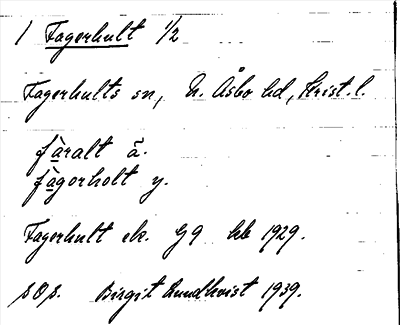 1 Fagerhult 1/2
Fagerhults sn, N. Åsbo hd, Krist. l.
fàralt ä.
fàgorholt y.
Fagerhult ek. G9 kb 1929.
Birgit Lundkvist 1939.